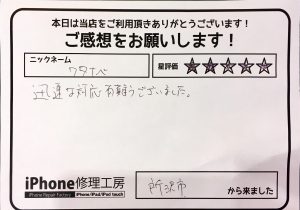 本日は当店をご利用頂きありがとうございます!
ご感想をお願いします!
ニックネーム
ワタナベ
星評価
迅速な対応有難うございました。
iPhone修理工房
iPhone Repair Factory
iPhone/iPad/iPod touch
所沢市
から来ました